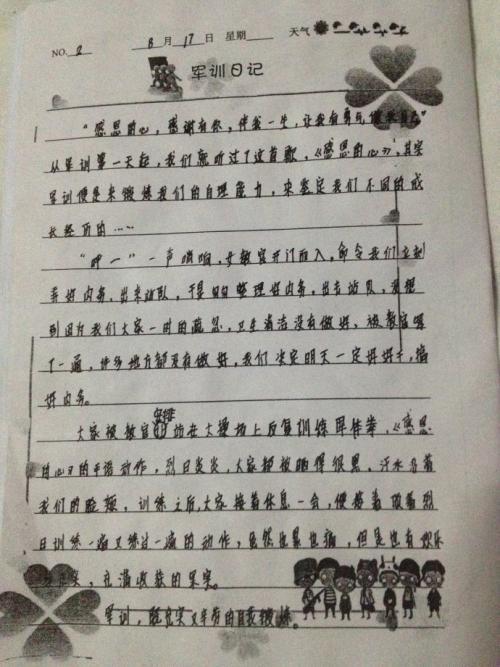 NO. 2 8月17日 星期 天气
军训日记
"感恩的心,感谢有你,伴我一生,让我有勇气做我自己"
从军训第一天起,我们就听过了这首歌,《感恩的心》,其实
军训便是来锻炼我们的自理能力,来鉴定我们不同的成
长经历的……
"呯一"一声哨响,女教官开门而入,命令我们立刻
弄好内务,出来站队,于是 整理好内务,出去站队,没想
到因为我们大家一时的疏忽,卫生清洁没有做好,被教官骂
了一通,许多地方都没有做好,我们决定明天一定好好干,搞
好内务。
大家被教官安排站在大操场上反复训练 ,《感恩
的心》的手语动作,烈日炎炎,大家都被晒得很黑,汗水 着
我们的脸颊,训练之后,大家接着休息一会,便接着顶着烈
日训练一遍又练过一遍的动作,虽然也累也痛,但是也有欢乐
充满收获的果实。
军训,既充实又辛劳的自我锻炼。